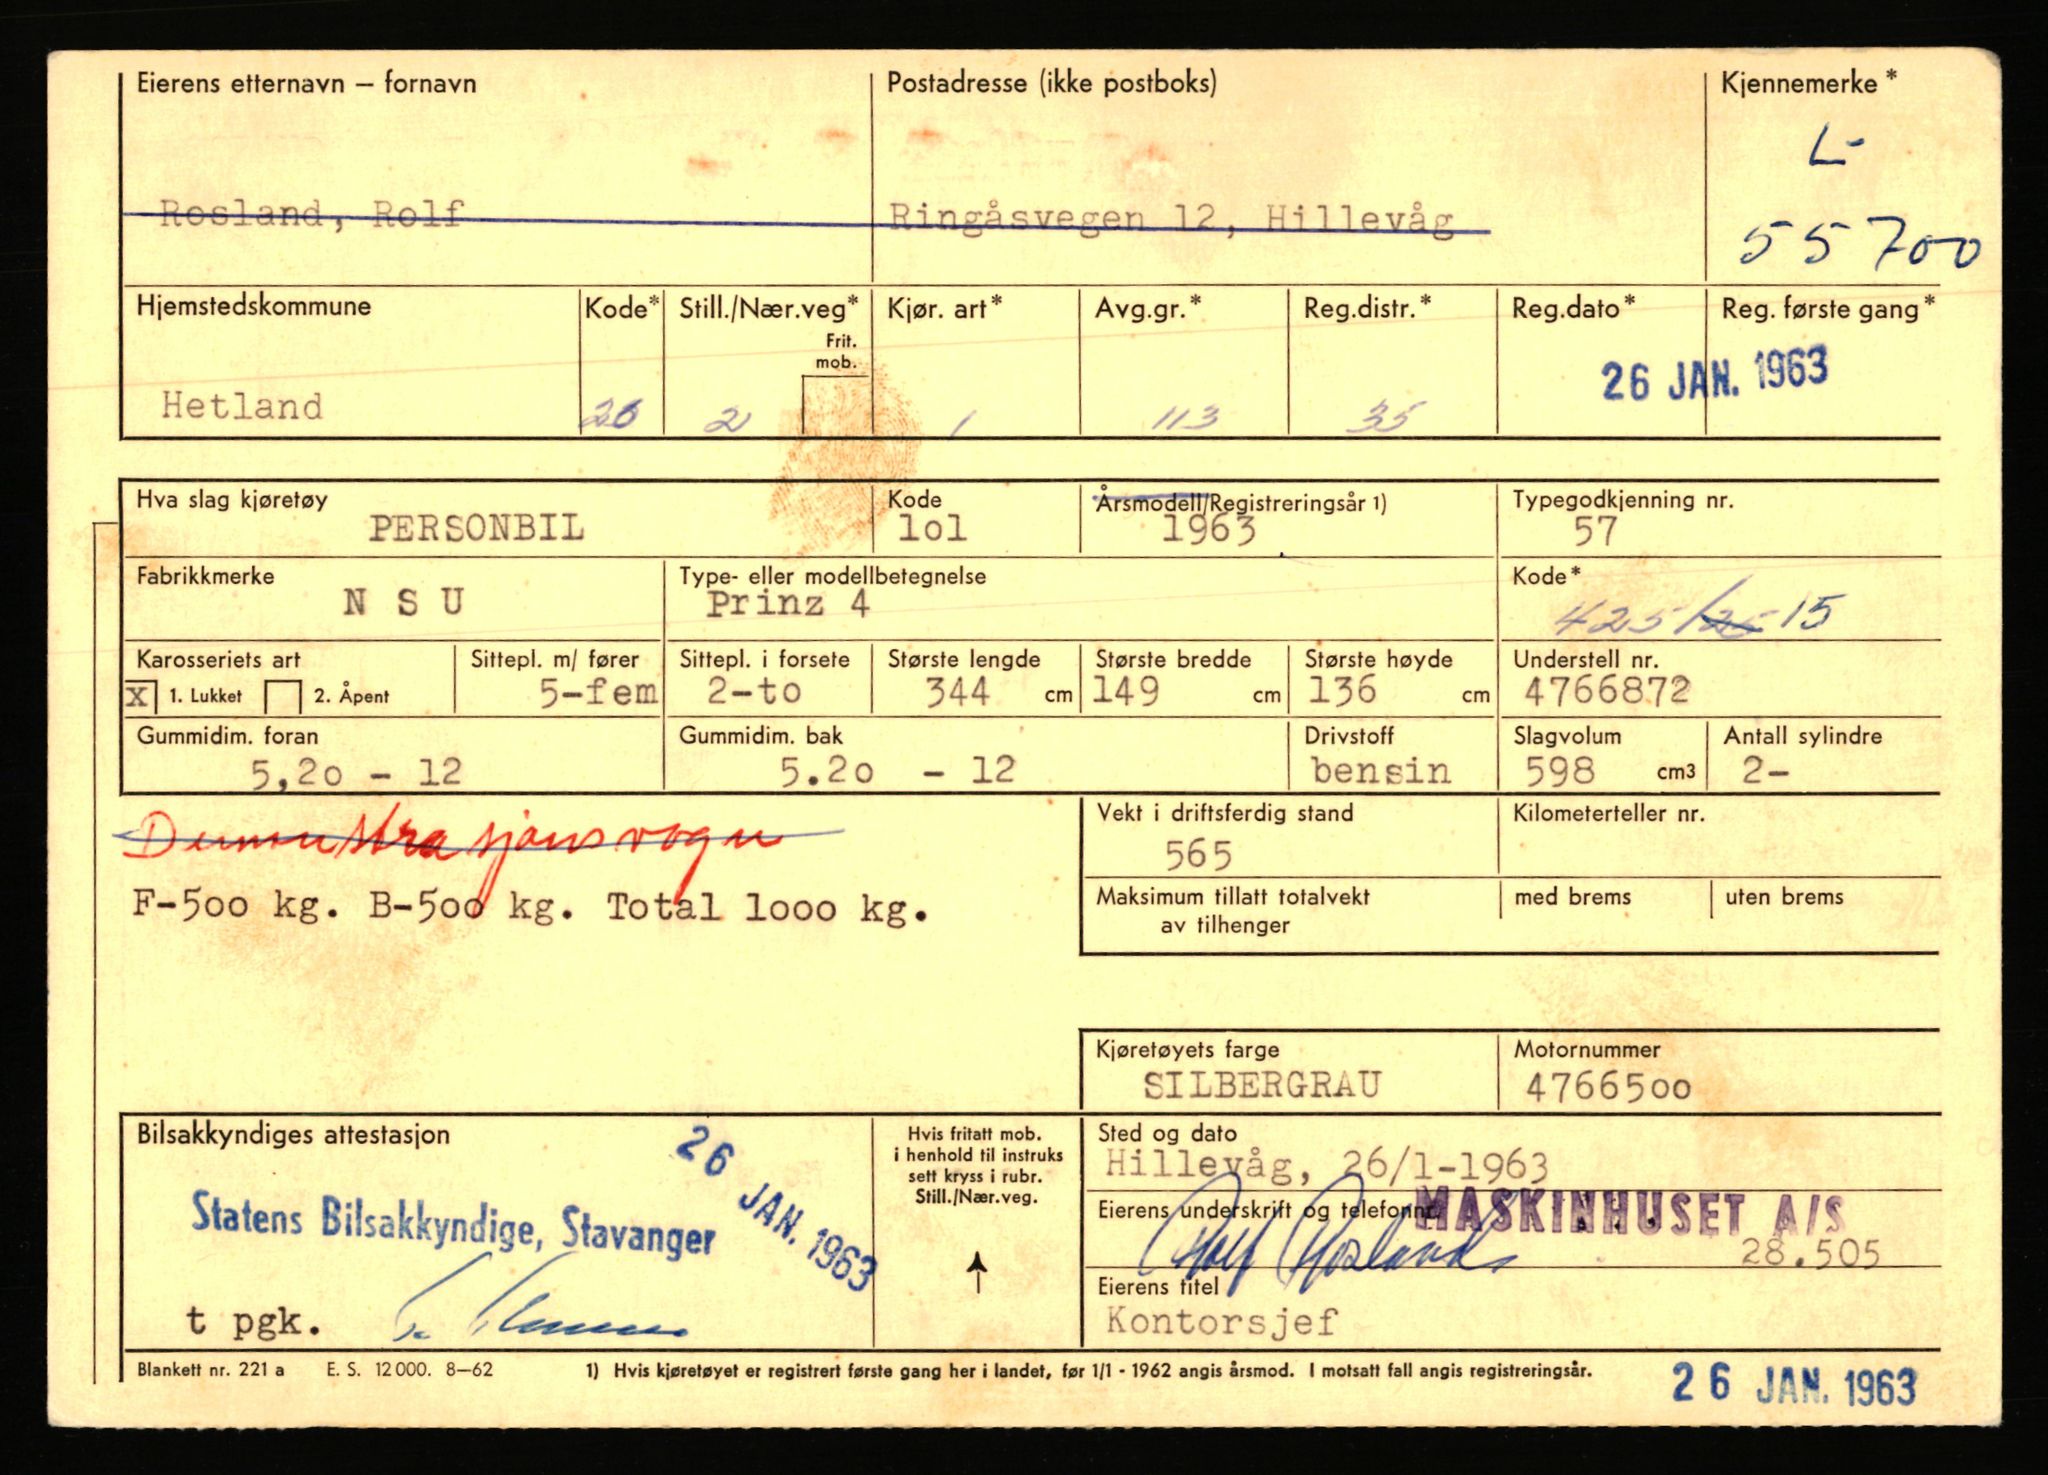 Eierens etternavn – fornavn
Postadresse (ikke postboks)
Kjennemerke*
L-
55700
Rosland, Rolf
Ringåsvegen 12, Hillevåg
Hjemstedskommune
Kode*
Still./Nær.veg*
Frit.
mob.
Kjør. art*
Avg.gr.*
Reg.distr.*
Reg.dato*
Reg. første gang*
26 JAN. 1963
Hetland
26
2
1
113
35
Hva slag kjøretøy
PERSONBIL
Kode
lol
Årsmodell/Registreringsår 1)
1963
Typegodkjenning nr.
57
Fabrikkmerke
N S U
Type- eller modellbetegnelse
Prinz 4
Kode*
425/25 15
Karosseriets art
X 1. Lukket 2. Åpent
Sittepl. m/ fører
5-fem
Sittepl. i forsete
2-to
Største lengde
344 cm
Største bredde
149 cm
Største høyde
136 cm
Understell nr.
4766872
Gummidim. foran
5,2o - 12
Gummidim. bak
5.2o - 12
Drivstoff
bensin
Slagvolum
598 cm3
Antall sylindre
2-
Demonstrasjonsvogn
F-5oo kg. B-5oo kg. Total looo kg.
Vekt i driftsferdig stand
565
Kilometerteller nr.
Maksimum tillatt totalvekt
av tilhenger
med brems
uten brems
Kjøretøyets farge
SILBERGRAU
Motornummer
47665oo
Bilsakkyndiges attestasjon
26 JAN. 1963
Statens Bilsakkyndige, Stavanger
t pgk.
Hvis fritatt mob.
i henhold til instruks
sett kryss i rubr.
Still./Nær.veg.
Sted og dato
Hillevåg, 26/1-1963
Eierens underskrift og telefonnr.
MASKINHUSET A/S
Rolf Rosland
28.505
Eierens titel
Kontorsjef
Blankett nr. 221 a E. S. 12000. 8–62
1) Hvis kjøretøyet er registrert første gang her i landet, før 1/1 - 1962 angis årsmod. I motsatt fall angis registreringsår.
26 JAN. 1963